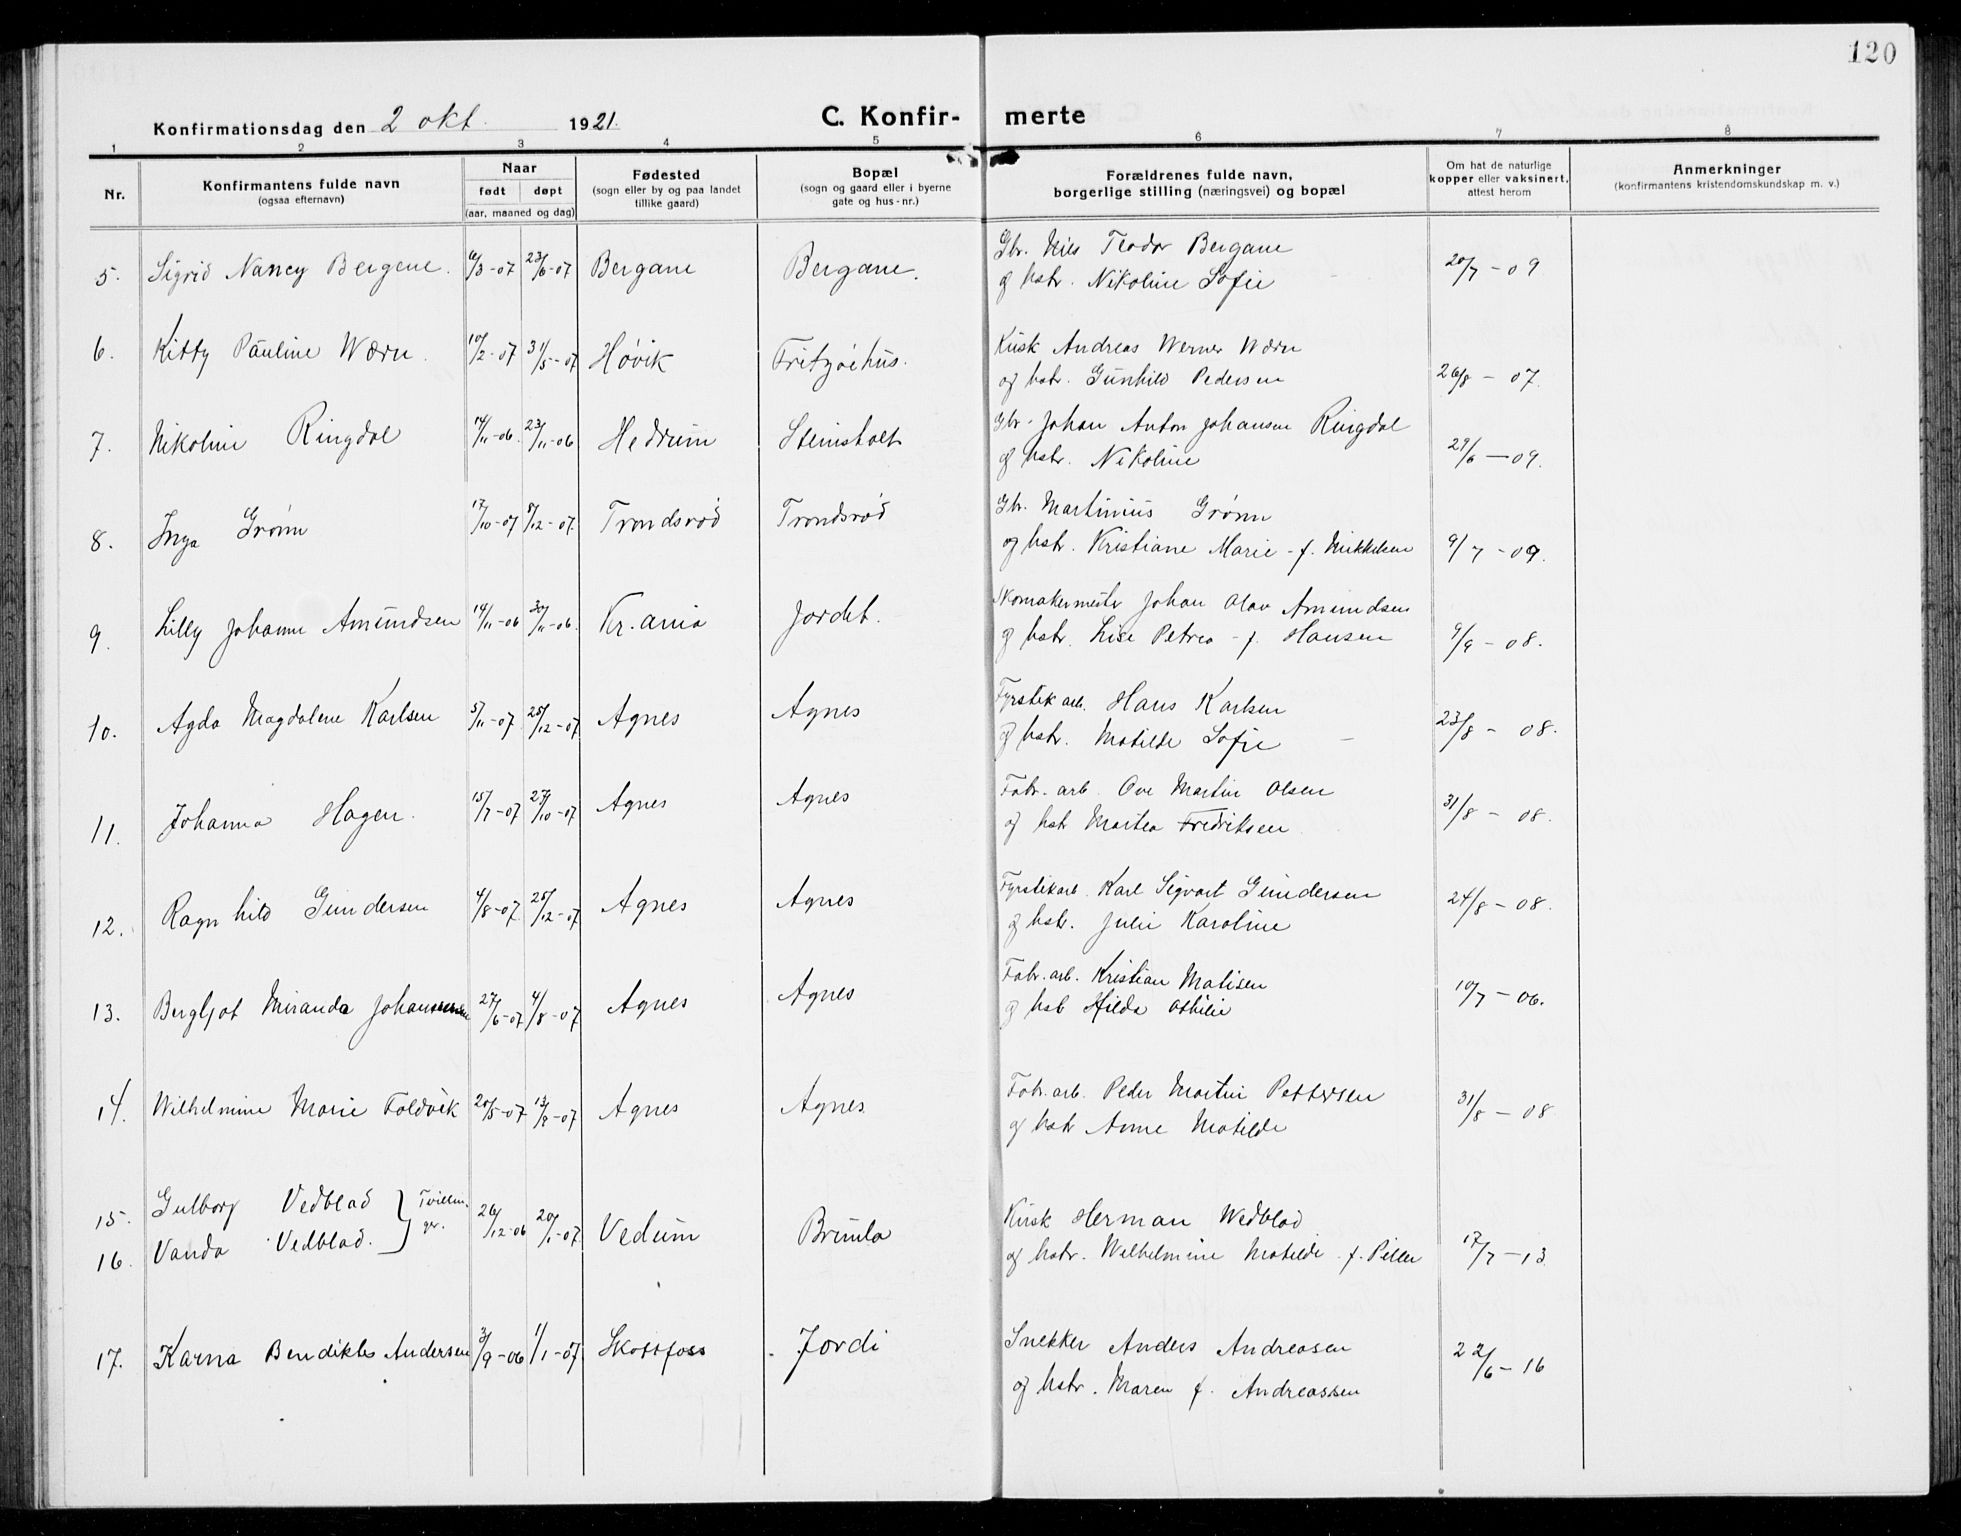 120
Konfirmationsdag den 2 okt. 1921.
C. Konfir- merte
1 2 3 4 5 6 7 8
Nr.
Konfirmantens fulde navn
(ogsaa efternavn)
Naar
født døpt
(aar, maaned og dag)
Fødested
(sogn eller by og paa landet
tillike gaard)
Bopæl
(sogn og gaard eller i byerne
gate og hus-nr.)
Forældrenes fulde navn,
borgerlige stilling (næringsvei) og bopæl
Om hat de naturlige
kopper eller vaksinert,
attest herom
Anmerkninger
(konfirmantens kristendomskundskap m. v.)
5. Sigrid Nancy Bergene. 6/3-07 23/6-07 Bergane Bergane. Gbr. Nils Teodor Bergane 20/7-09
og hstr. Nikoline Sofie
6. Kitty Pauline Wærn. 10/2-07 31/5-07 Høvik Fritzøehus. Kusk Andreas Werner Wærn
og hstr. Gunhild Pedersen 26/8-07.
7. Nikoline Ringdal 14/11-06. 23/11-06 Hedrum Steinsholt Gbr. Johan Anton Johansen Ringdal
og hstr. Nikoline 29/6-09.
8. Inga Grønn 17/10-07 8/12-07. Trondsrød Trondsrød Gbr. Martinius Grønn
og hstr. Kristiane Marie - f. Mikkelsen 9/7-09.
9. Lilly Johanne Amundsen 14/11-06 30/11-06. Kr.ania Jordet. Skomakermester Johan Olav Amundsen
og hstr. Lise Petrea - f. Hansen 9/9-08.
10. Agda Magdalene Karlsen 5/11-07. 25/12-07 Agnes Agnes Fyrstikarb. Hans Karlsen 23/8-08.
og hstr. Matilde Sofie
11. Johanna Hagen. 15/7-07 27/10-07 Agnes Agnes Fabr. arb. Ove Martin Olsen 31/8-08.
og hstr Martea Fredriksen
12. Ragnhild Gundersen 4/8-07 25/12-07 Agnes Agnes Fyrstikarb. Karl Sigvart Gundersen 24/8-08.
og hstr. Julie Karoline
13. Bergljot Miranda Johannesen 27/6-07 4/8-07 Agnes Agnes Fabr. arb. Kristian Matisen 10/7-06.
og hst Hilda Othilie
14. Wilhelmine Marie Foldvik 20/5-07 13/8-07 Agnes Agnes. Fabr. arb. Peder Martin Pettersen 31/8-08
og hstr Anne Matilde
15. Gulborg Vedblad } Tvillin- 26/12-06 20/1-07 Vedum Brunla Kusk Herman Wedblad
16. Vanda Vedblad. ger. og hstr. Wilhelmine Matilde f. Piller 17/7-13
17. Karna Bendikte Andersen 3/9-06 1/1-07 Skotfoss Jordi Snekker Anders Andreasen 22/6-16
og hstr. Maren f. Andreassen